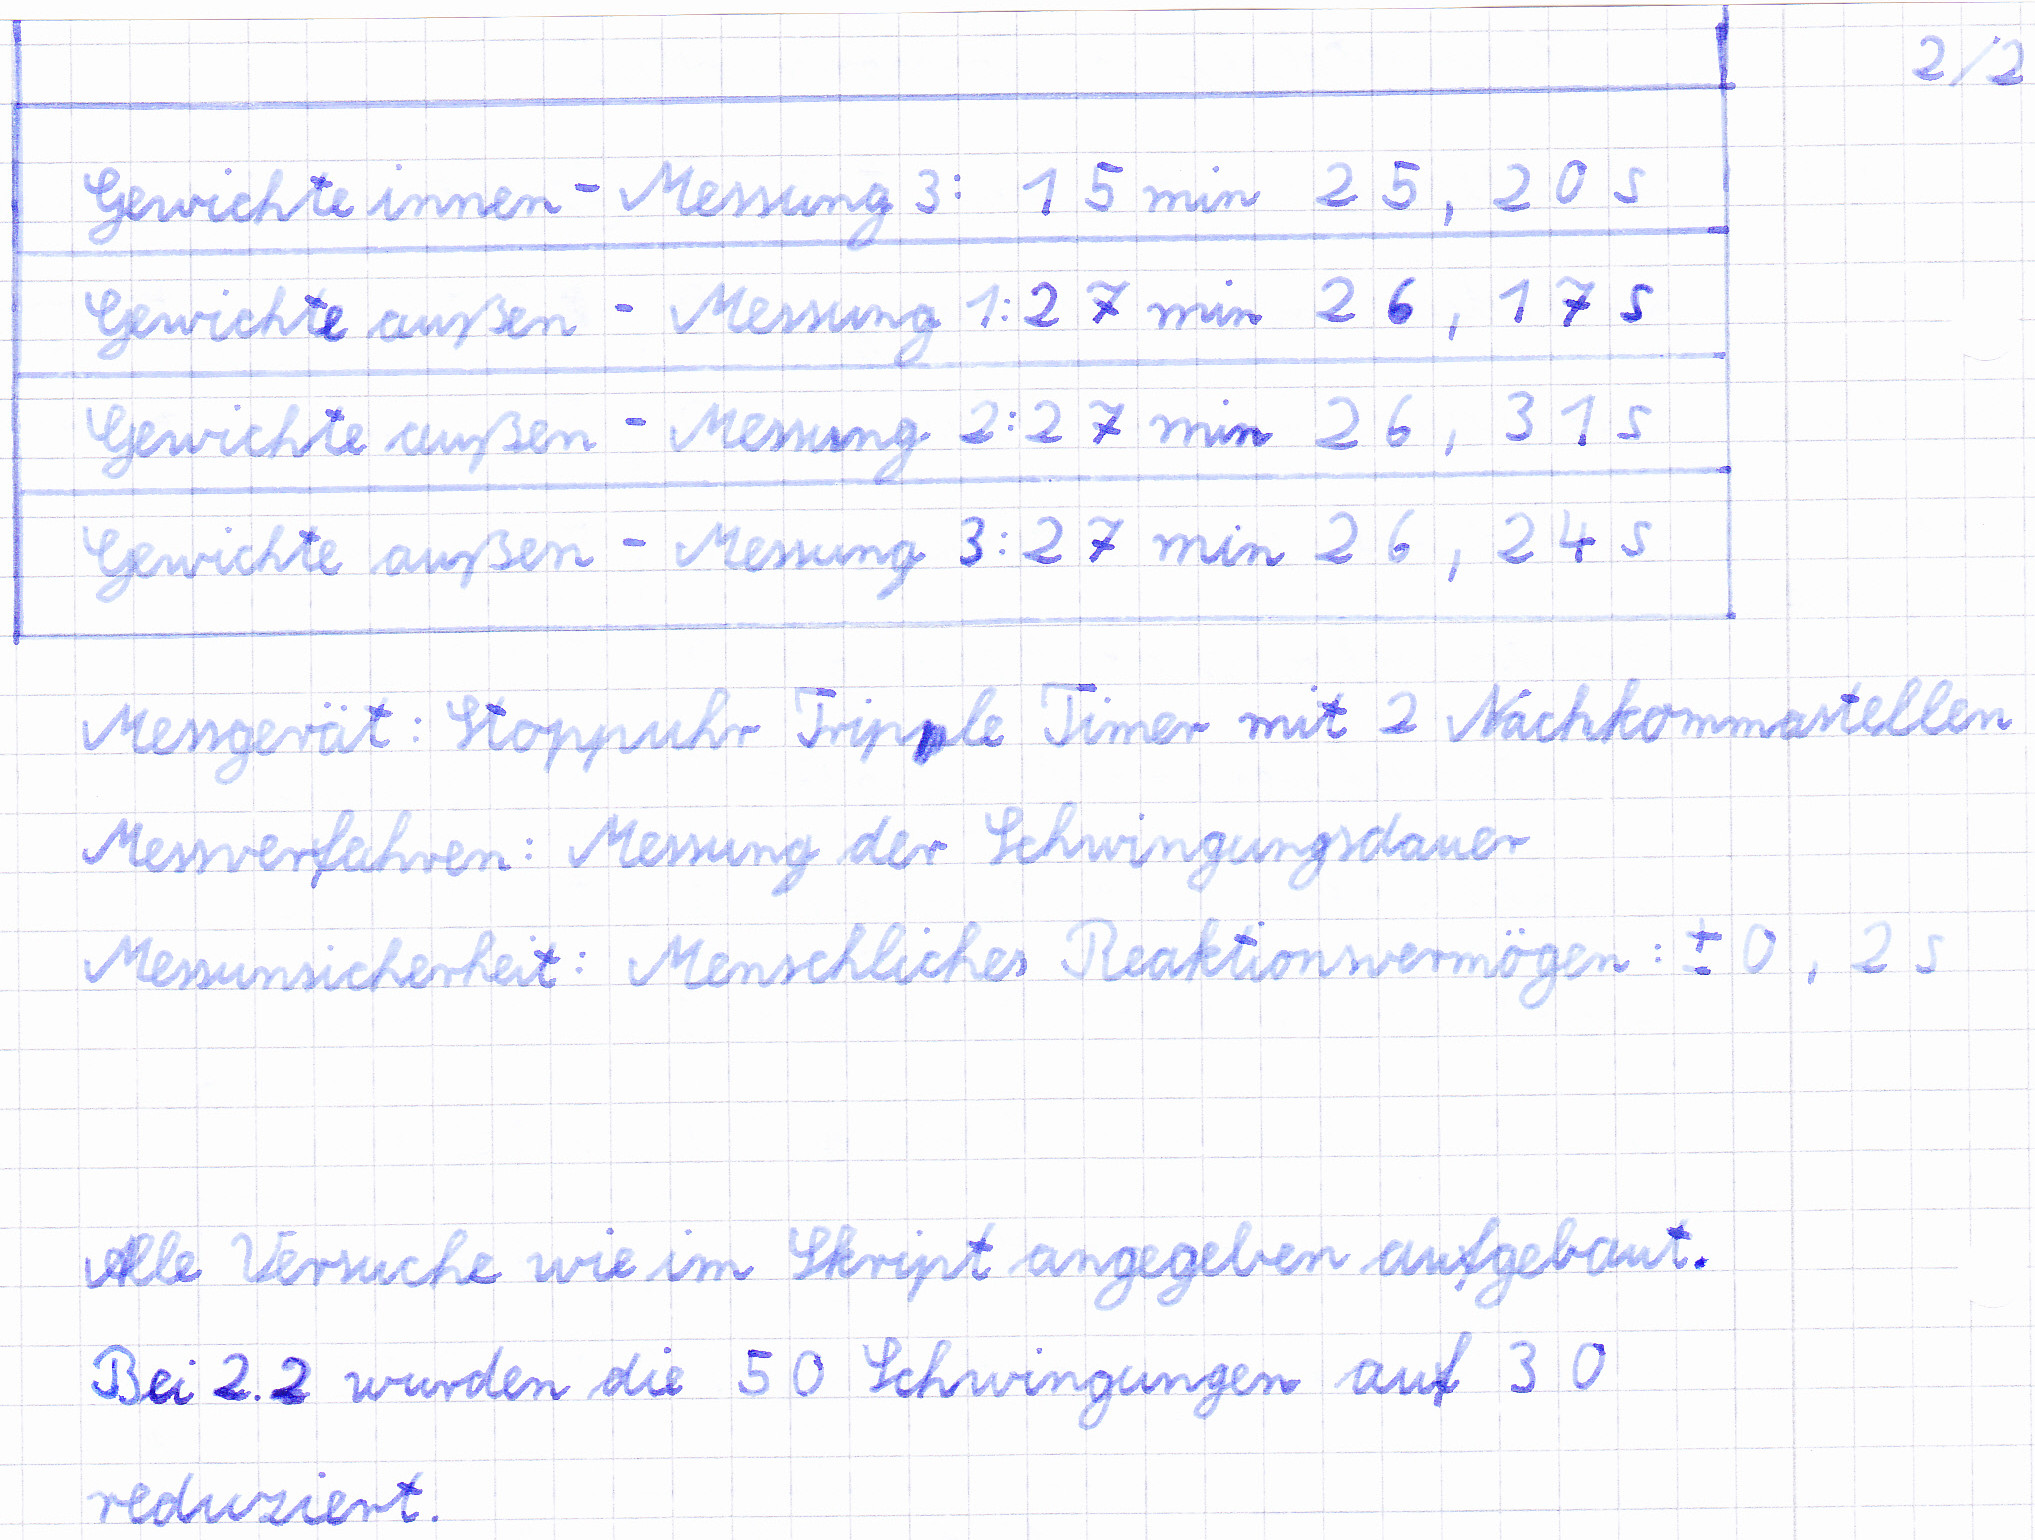 2/2
Gewichte innen - Messung 3: 15 min 25,20 s
Gewichte außen - Messung 1: 27 min 26,17 s
Gewichte außen - Messung 2: 27 min 26,31 s
Gewichte außen - Messung 3: 27 min 26,24 s
Messgerät: Stoppuhr Triple Timer mit 2 Nachkommastellen
Messverfahren: Messung der Schwingungsdauer
Messunsicherheit: Menschliches Reaktionsvermögen: ± 0,2 s
Alle Versuche wie im Skript angegeben aufgebaut.
Bei 2.2 wurden die 50 Schwingungen auf 30
reduziert.